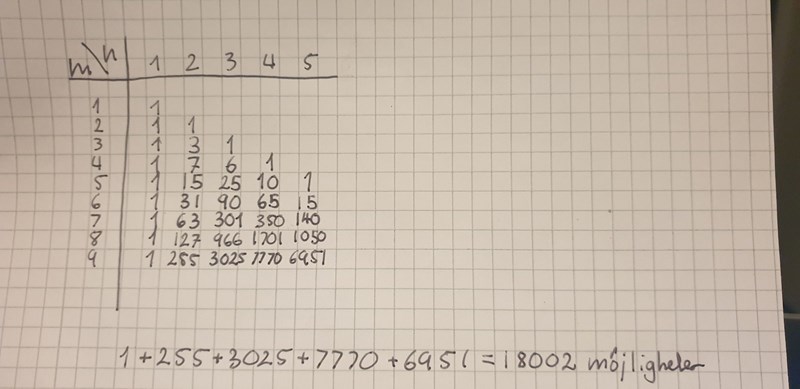 m\n 1 2 3 4 5
1 1
2 1 1
3 1 3 1
4 1 7 6 1
5 1 15 25 10 1
6 1 31 90 65 15
7 1 63 301 350 140
8 1 127 966 1701 1050
9 1 255 3025 7770 6951
1+255+3025+7770+6951=18002 möjligheter